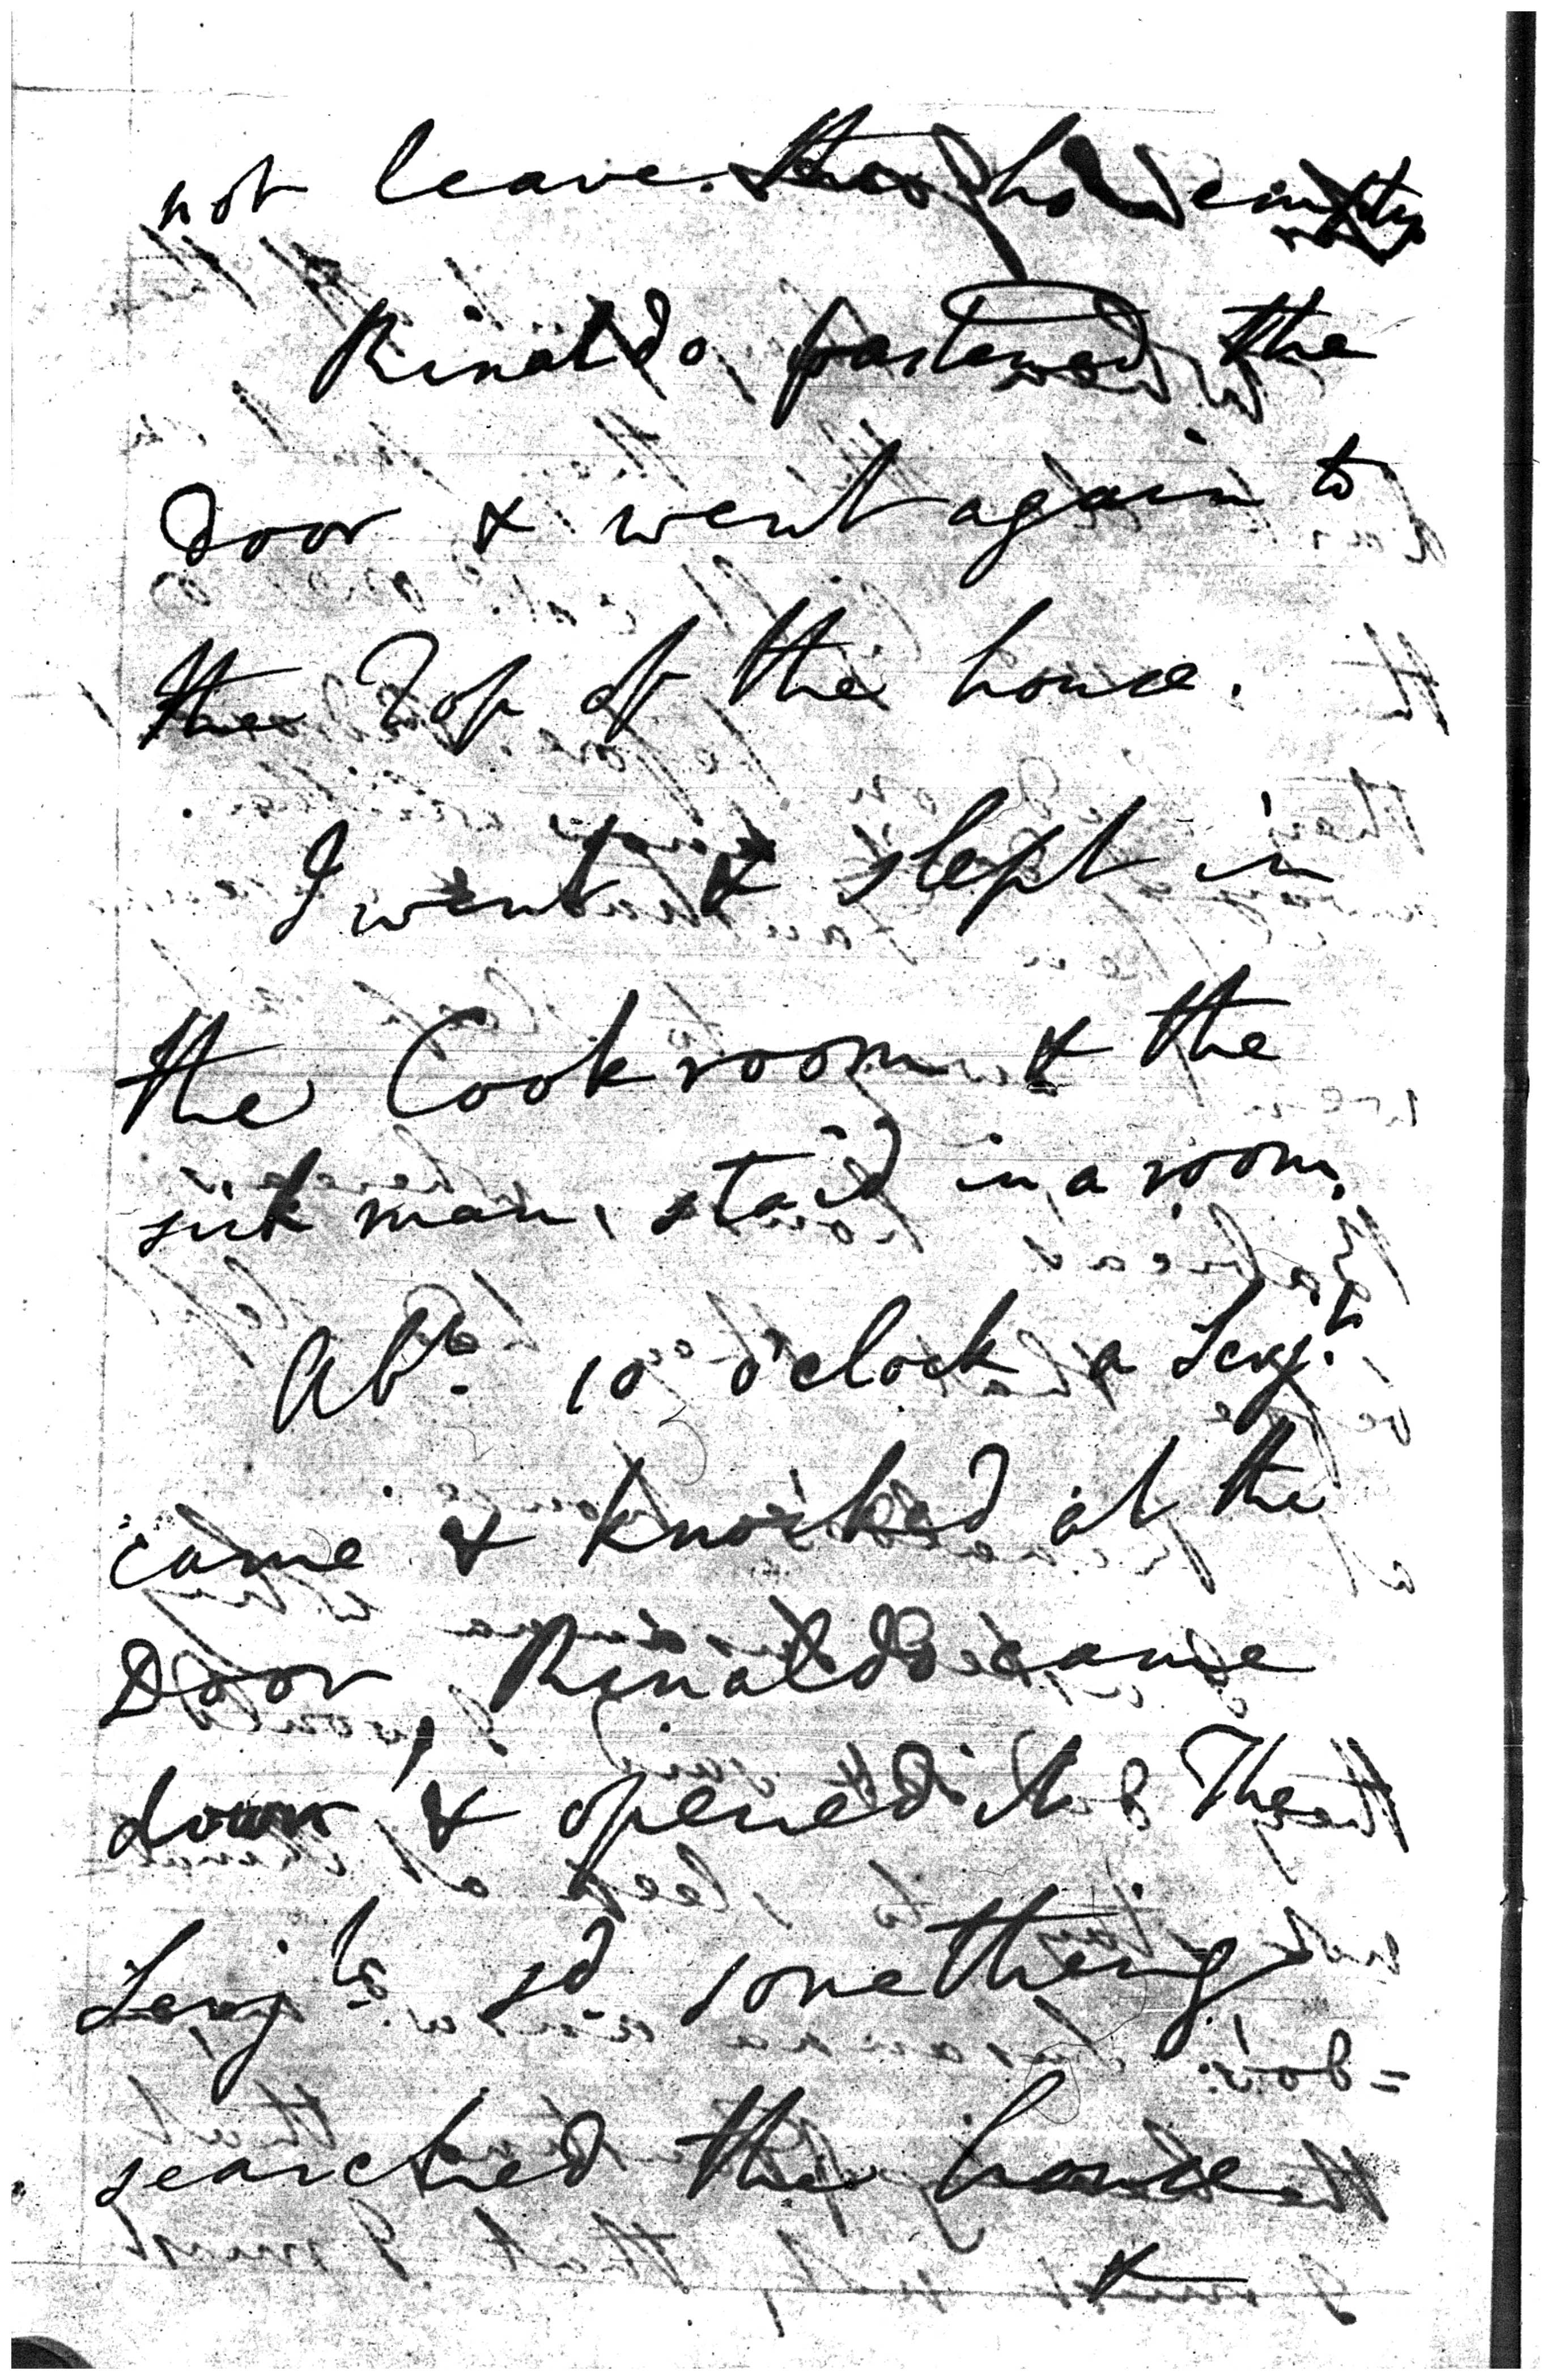 not leave the house empty
Rinaldo fastened the
Door & went again to
the Top of the house.
I went & slept in
the Cook room & the
sick man, staid in a room.
Abt. 10 o'clock a Serjt.
came & knocked at the
Door, Rinaldo came
down, & opened it & The
Serjt. sd something
searched the house
&